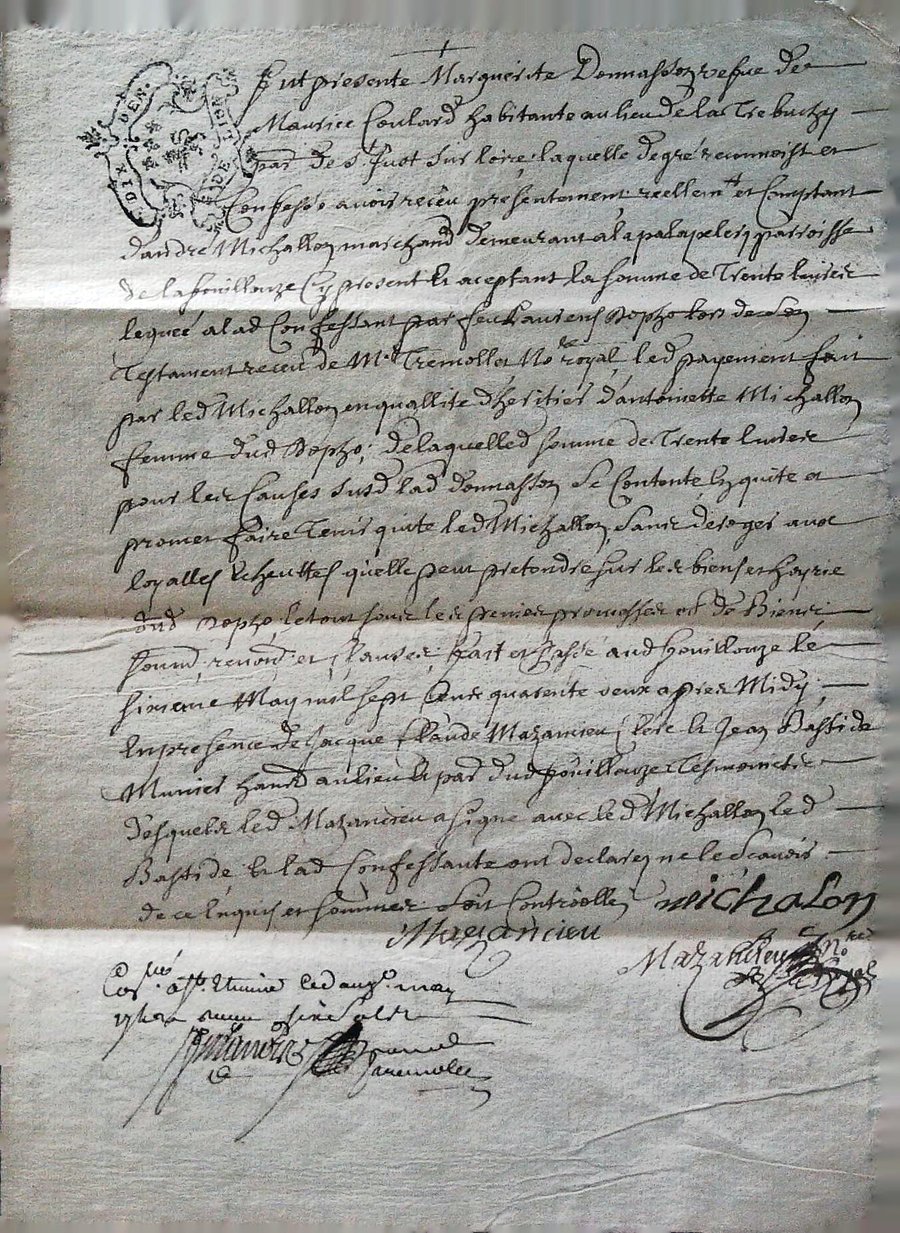 DIX DEN.
Fut presente Marguerite Donnasson vefue de
Maurice Coulard habitante au lieu de la Trebuchy
par. de St Just sur loire, laquelle de gré reconnoist et
Confesse avoir reçeu presentement reellemt et Comptant
d'andré Michallon marchand demeurant a la palapelery parroisse
de la fouillouze Cy present et aceptant la somme de Trente livres
legueé a lad Confessant par feu Laurens Dopzo lors de son
Testament receu de Me Tremollet No.re royal, led payement fait
par led Michallon en quallité d'heritier d'antoinette Michallon
femme dud Dopzo, de laquelle d somme de Trente livres
pour les Causes susd lad donnasson se Contente, En quite et
promet faire Tenir quite led Michallon, sans deroger aux
loyalles Echeuttes qu'elle peut pretendre sur les biens et hoyrie
dud Dopzo, le tout sous les peines promesses obl de Biens
soumd renond et Clauses, fait et Passé aud fouillouze le
sixieme May mil sept Cents quarente deux apres Midy,
En presence de Jacque Claude Mazancieu Clerc et Jean Bastide
Munier habitd au lieu et par dud fouillouze Tesmoins
desquels led Mazancieu a signé avec led Michallon led
Bastide et lad Confessante ont declaré ne le Scavoir
de ce Enquis et sommés Soit Controllé
Michalon
Mazancieu
Mazancieu Nre
Royal